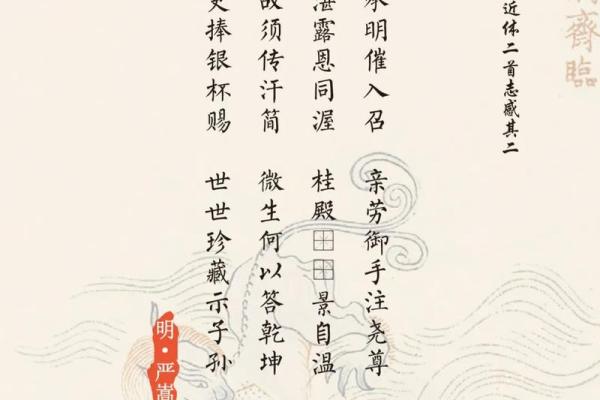 近体二首志感其二
承明催入召 亲劳御手注尧尊
湛露恩同渥 桂殿 景自温
故须传汗简 微生何以答乾坤
更捧银杯赐 世世珍藏示子孙
明·严嵩
斋臨